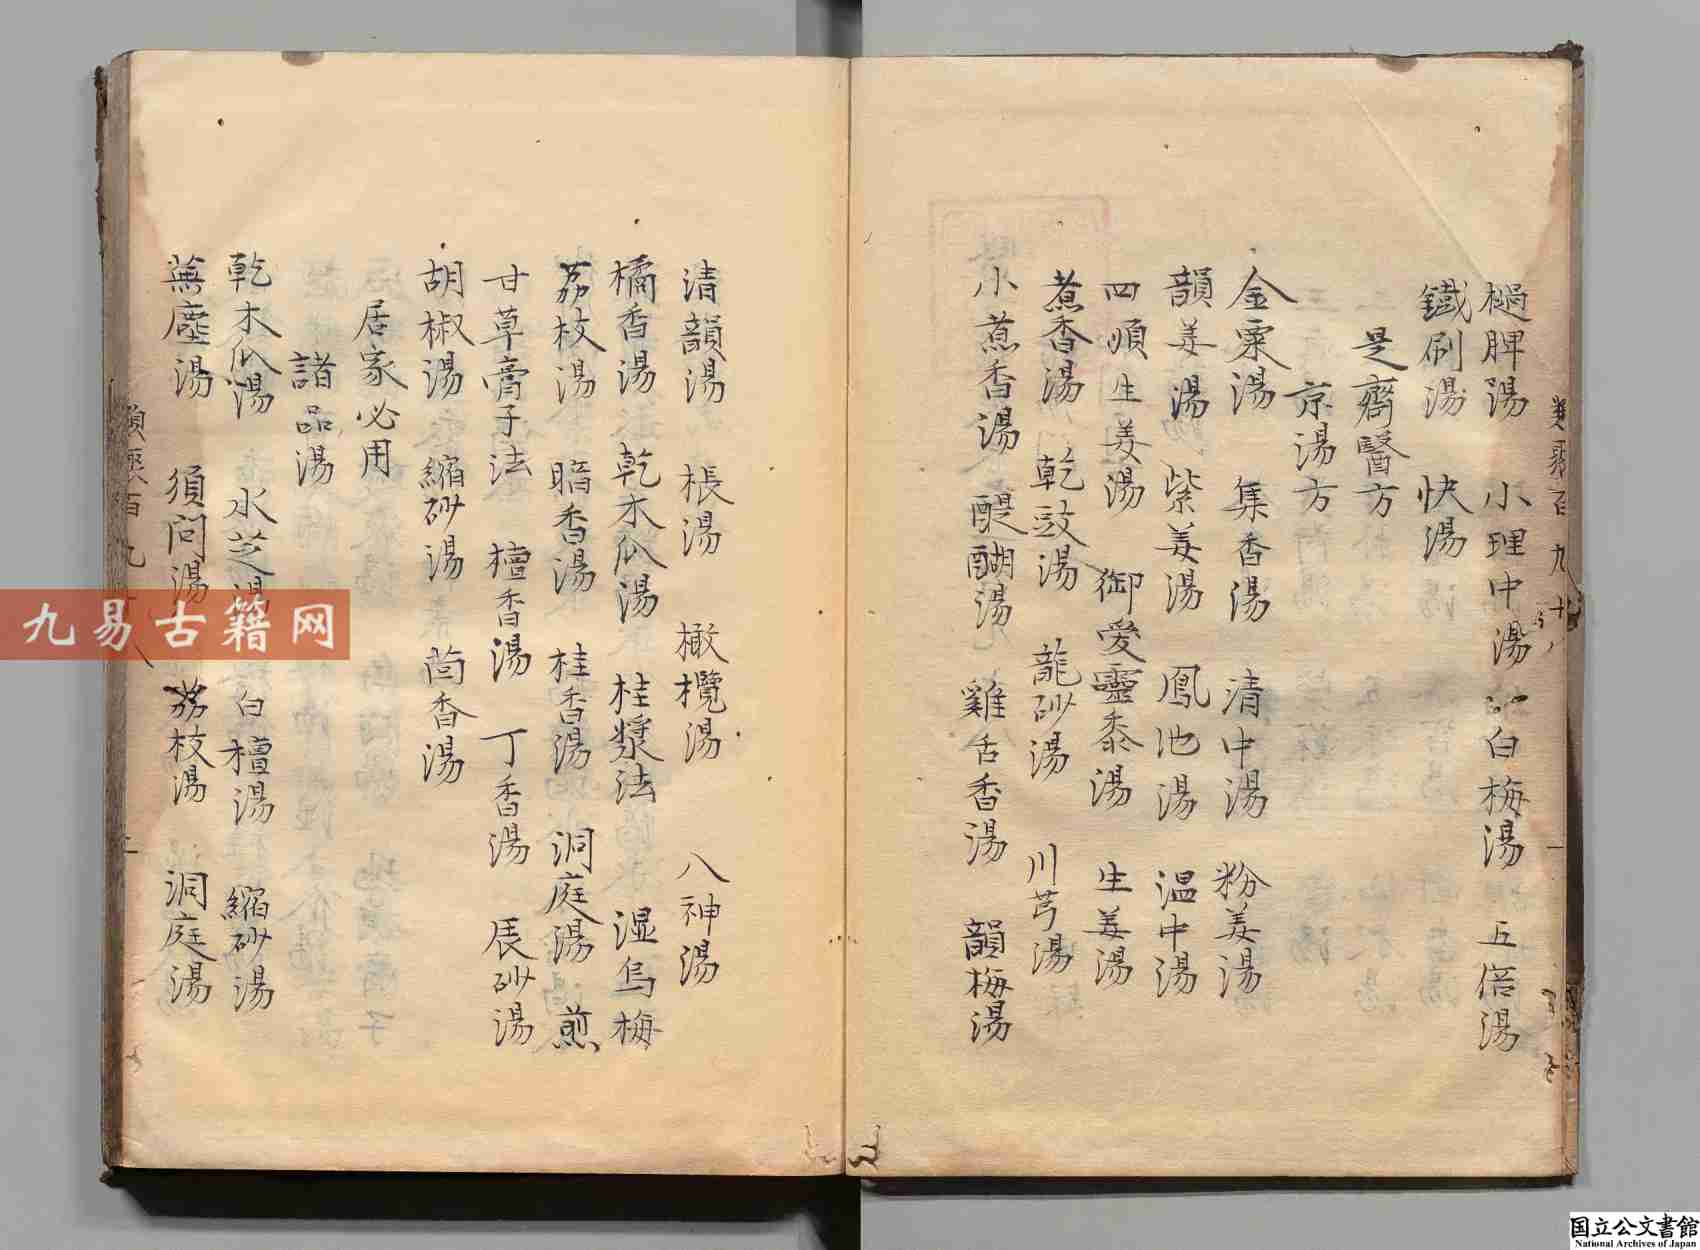 檛脾湯 小理中湯 白梅湯 五倍湯
鐵刷湯 快湯
是齋醫方
京湯方
金粟湯 集香湯 清中湯 粉姜湯
韻姜湯 紫姜湯 鳳池湯 温中湯
四順生姜湯 御愛靈黍湯 生姜湯
煮香湯 乾豉湯 龍砂湯 川芎湯
小煮香湯 醍醐湯 雞舌香湯 韻梅湯
清韻湯 棖湯 橄欖湯 八神湯
橘香湯 乾木瓜湯 桂漿法 湿烏梅
荔枝湯 暗香湯 桂香湯 洞庭湯 煎
甘草膏子法 檀香湯 丁香湯 辰砂湯
胡椒湯 縮砂湯 茴香湯
居家必用
諸品湯
乾木瓜湯 水芝湯 白檀湯 縮砂湯
無塵湯 須問湯 荔枝湯 洞庭湯
九易古籍网
国立公文書館
National Archives of Japan